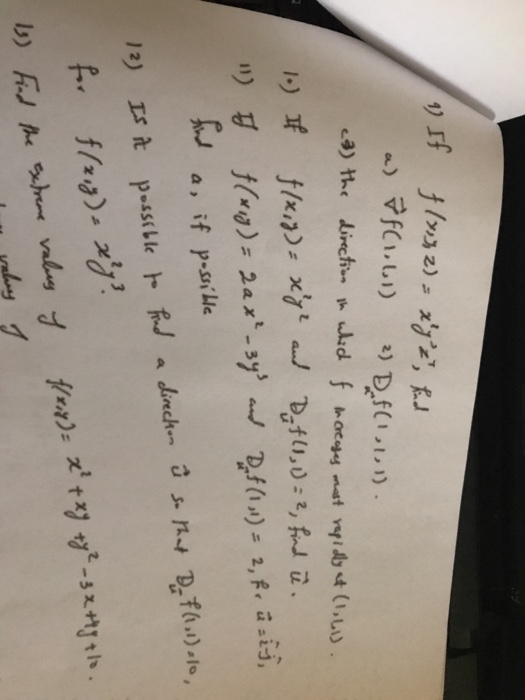 9) If f(x,y,z) = x²y³z⁷, find
a) ∇⃗f(1,1,1) 2) D_u⃗ f(1,1,1).
c3) the direction in which f increases most rapidly at (1,1,1).
10) If f(x,y) = x²y² and D_u⃗ f(1,1) = 2, find u⃗.
11) If f(x,y) = 2ax² - 3y³ and D_u⃗ f(1,1) = 2, for u⃗ = i⃗-j⃗,
find a, if possible
12) Is it possible to find a direction u⃗ so that D_u⃗ f(1,1) = 10,
for f(x,y) = x²y³.
13) Find the extreme values of f(x,y) = x² + xy + y² - 3x + 4y + 10.
values of